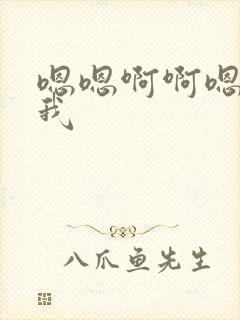 嗯嗯啊啊嗯
我
八爪鱼先生